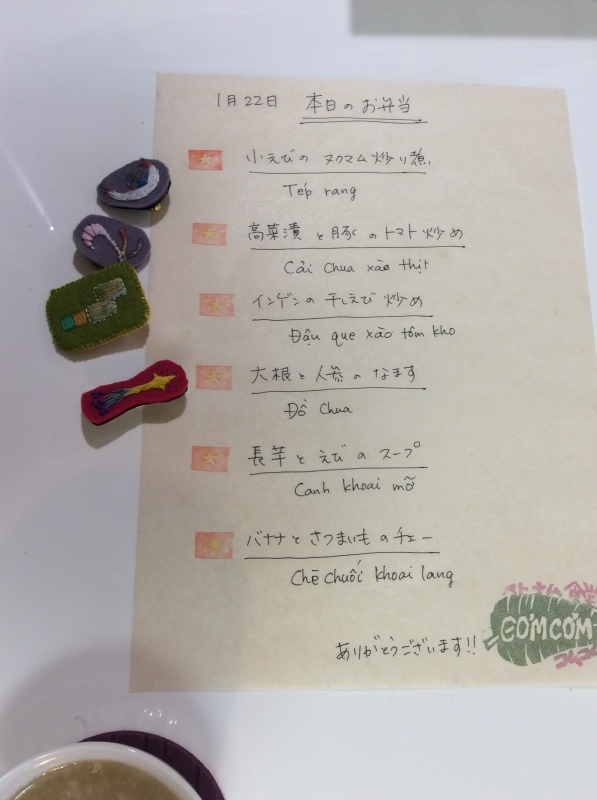 1月22日 本日のお弁当
小えびのヌクマム炒り煮
Tép rang
高菜漬と豚のトマト炒め
Cải chua xào thịt
インゲンの干しえび炒め
Đậu que xào tôm kho
大根と人参のなます
Đồ chua
長芋とえびのスープ
Canh khoai mỡ
バナナとさつまいものチェー
Chē chuối khoai lang
ありがとうございます!!
ベトナム
CƠMCƠM
コムコム